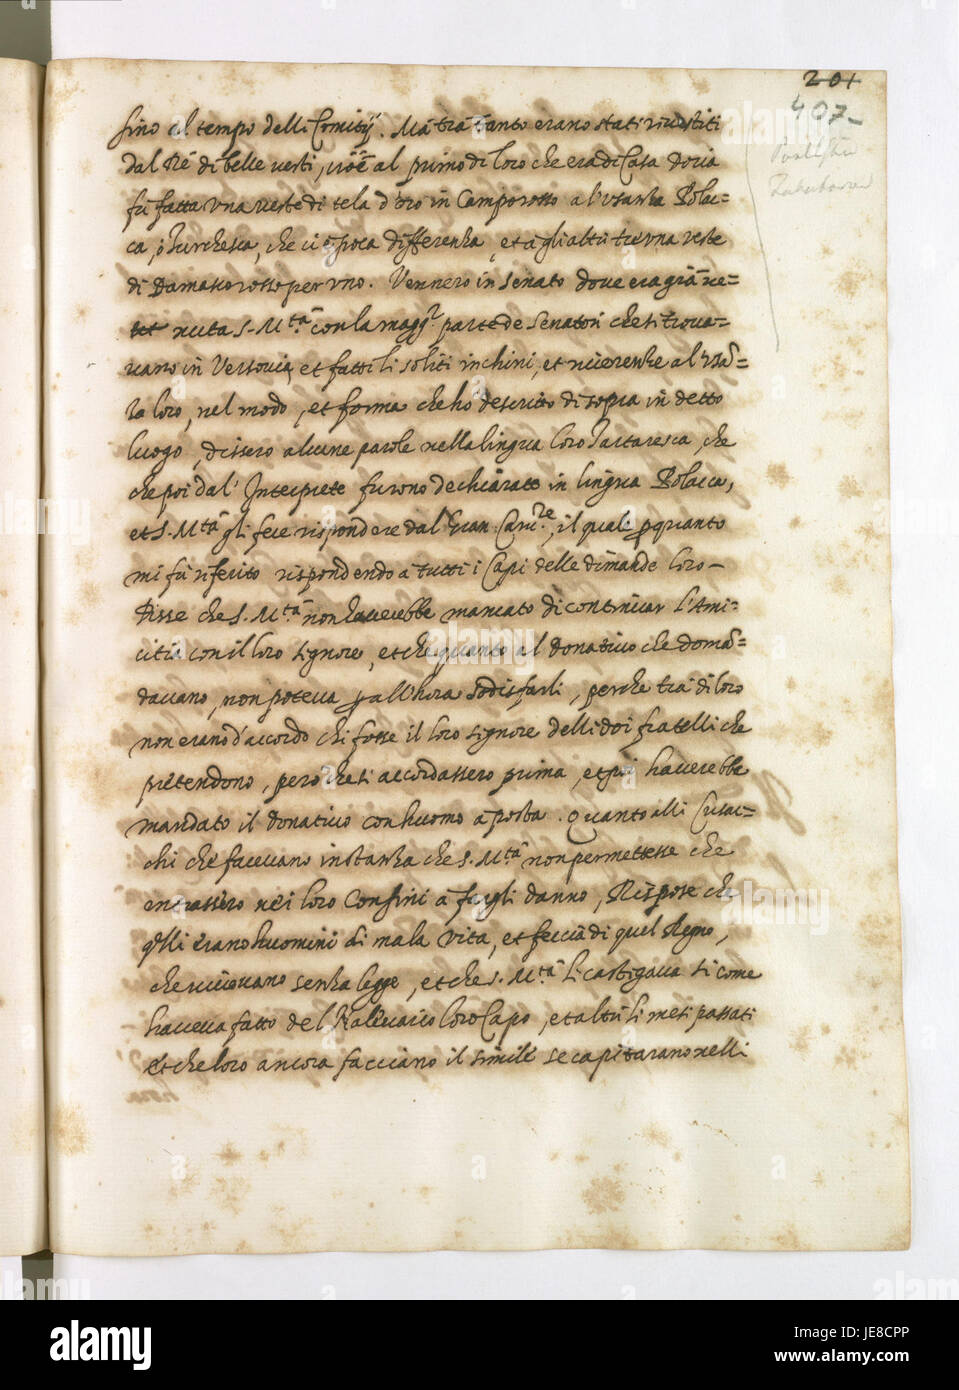 201
407
sino al tempo delli Comitÿ. Mà trà tanto erano stati rivestiti
dal Rè di belle vesti, cioè al primo di loro che era di Casa
fù fatta una veste di tela d'oro in Camporosso a l'usanza Polac=
ca, ò Turchesca, che ci è poca differenza, et à gli altri tre una veste
di Damasco rosso per uno. Vennero in Senato dove era già ve=
nuta S. Mtà con la maggr parte de Senatori che si trova=
vano in Versovia, et fatti li soliti inchini, et riverenze al'usan=
za loro, nel modo, et forma che hò descritto di sopra in detto
luogo, dissero alcune parole nella lingua loro Tartaresca, che
che poi dal' Interprete furono dechiarate in lingua Polacca,
et S. Mtà gli fece rispondere dal Gran Cancre, il quale p quanto
mi fù riferito rispondendo à tutti i Capi delle dimande loro
Disse che S. Mtà non haverebbe mancato di continuar l'Ami=
citia con il loro signore, et che quanto al donativo che doman=
davano, non poteva p all'hora sodisfarli, perche trà di loro
non erano d'accordo chi fosse il loro signore delli doi fratelli che
pretendono, però che si accordassero prima, et poi haverebbe
mandato il donativo con huomo à posta. Quanto alli Cusac=
chi che facevano instanza che S. Mtà non permettesse che
entrassero nei loro Confini à fargli danno, Rispose che
qlli erano huomini di mala vita, et feccia di quel Regno,
che vivevano senza legge, et che S. Mtà li castigava si come
haveva fatto del Nalivaico loro Capo, et altri li mesi passati
Et che loro ancora facciano il simile se capitarano nelli
alamy
Image ID: JE8CPP
www.alamy.com